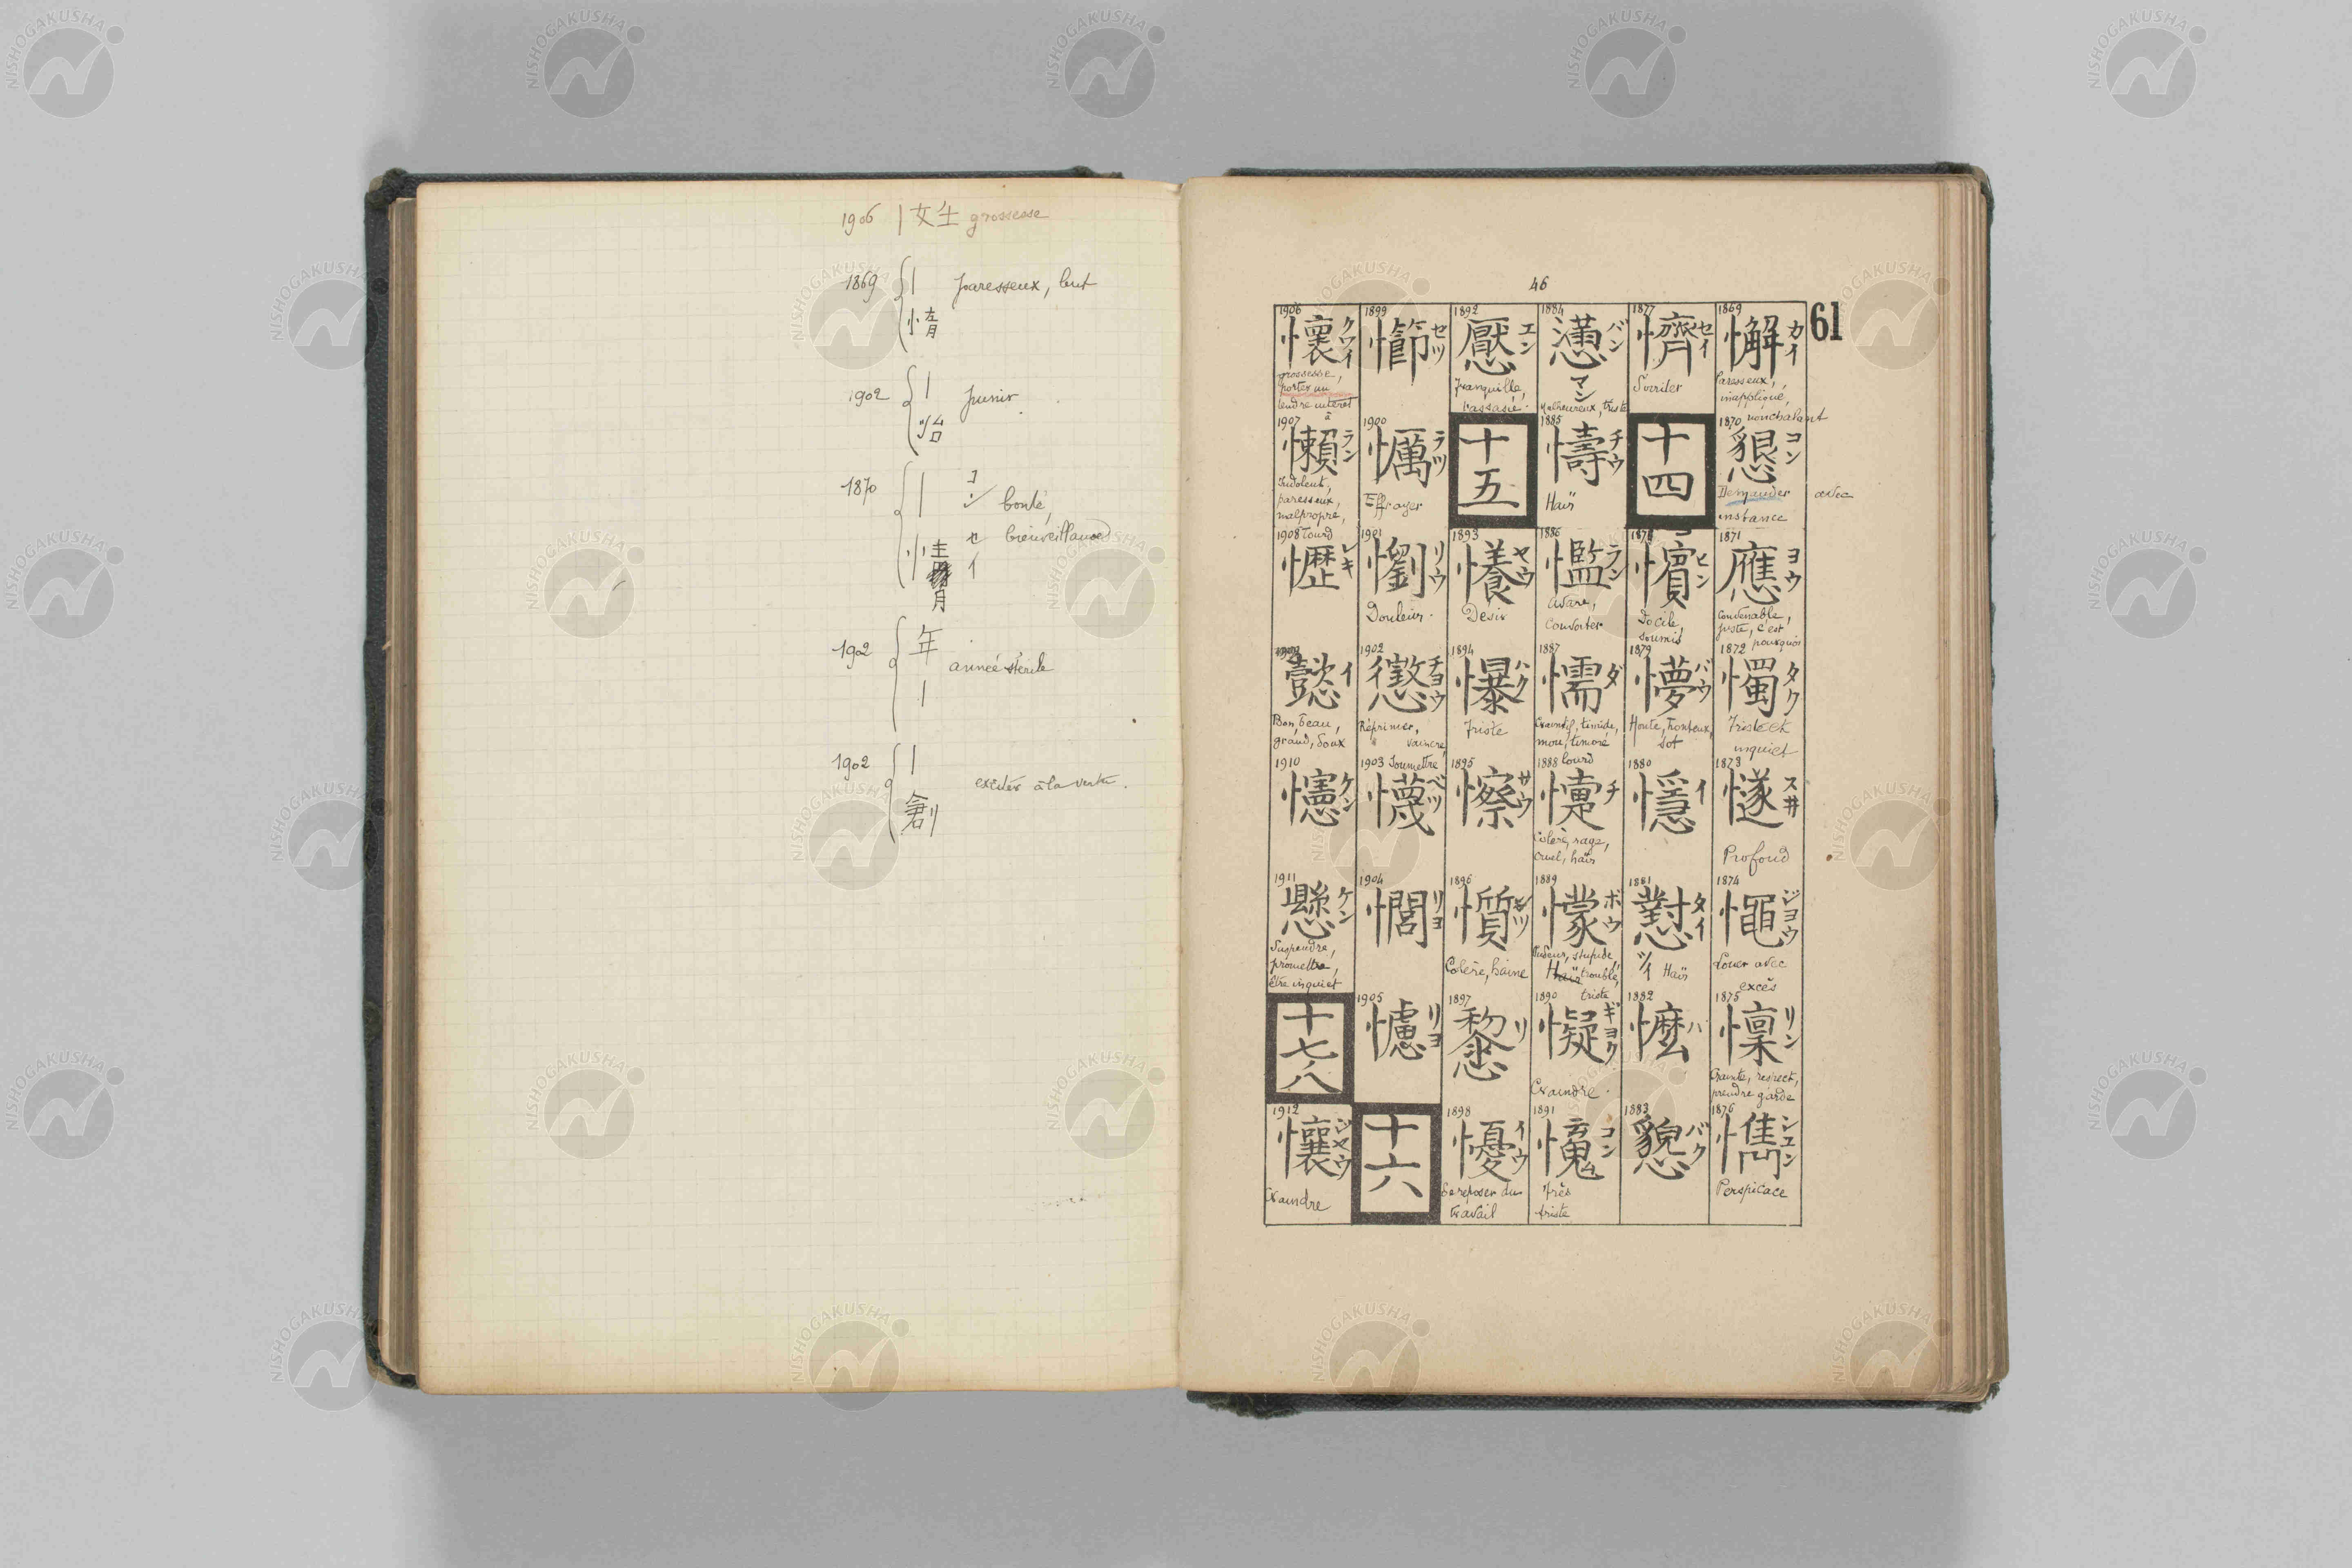 1906 | 女生 grossesse
1869 | paresseux, lent
惰
1902 | punir
治
1870 | コン bonté,
情 セイ bienveillance
1902 年 année stérile
|
1902 | exciter à la vertu.
創
46
61
1869 懈 カイ
Paresseux,
inappliqué,
nonchalant
1870 懇 コン
Demander avec
instance
1871 應 ヨウ
Convenable,
juste, c'est
pourquoi
1872 㦡 タク
Triste et
inquiet
1873 㦅 スヰ
Profond
1874 憴 ジヨウ
Louer avec
excès
1875 懍 リン
Crainte, respect,
prendre garde
1876 㦎 シユン
Perspicace
1877 懠 セイ
Irriter
十四
ヒン
Docile,
soumis
1879 懜 バウ
Honte, honteux,
sot
1880 㥯 イ
1881 懟 タイ
ツイ Haïr
1882 懡 バ
1883 懇 バク
1884 懣 バン
マン
Malheureux, triste
1885 懤 チウ
Haïr
1886 㦨 ラン
Avare,
Convoiter
1887 懦 ダ
Craintif, timide,
mou, timoré
lourd
1888 懥 チ
Colère, rage,
cruel, haïr
1889 懞 ボウ
stupide,
Haïr trouble,
triste
1890 懝 ギヨク
Craindre.
1891 コン
Très
triste
1892 懕 エン
Tranquille,
rassasié.
十五
1893 懩 ヤウ
Désir
1894 懪 ハク
Triste
1895 サウ
1896 懫 シツ
Colère, haine
1897 リ
1898 懮 イウ
Se reposer du
travail
1899 セツ
1900 ラツ
Effrayer
1901 懰 リウ
Douleur.
1902 懲 チヨウ
Réprimer,
vaincre,
Soumettre
1903 懱 ベツ
1904 リヨ
1905 リヨ
十六
1906 懷 クワイ
grossesse,
porter un
tendre intérêt
à
1907 懶 ラン
Indolent,
paresseux,
malpropre,
lourd
1908 レキ
懿 イ
Bon, beau,
grand, doux
1910 ケン
1911 懸 ケン
Suspendre,
promettre,
être inquiet
十七八
1912 懹 ジヤウ
Craindre